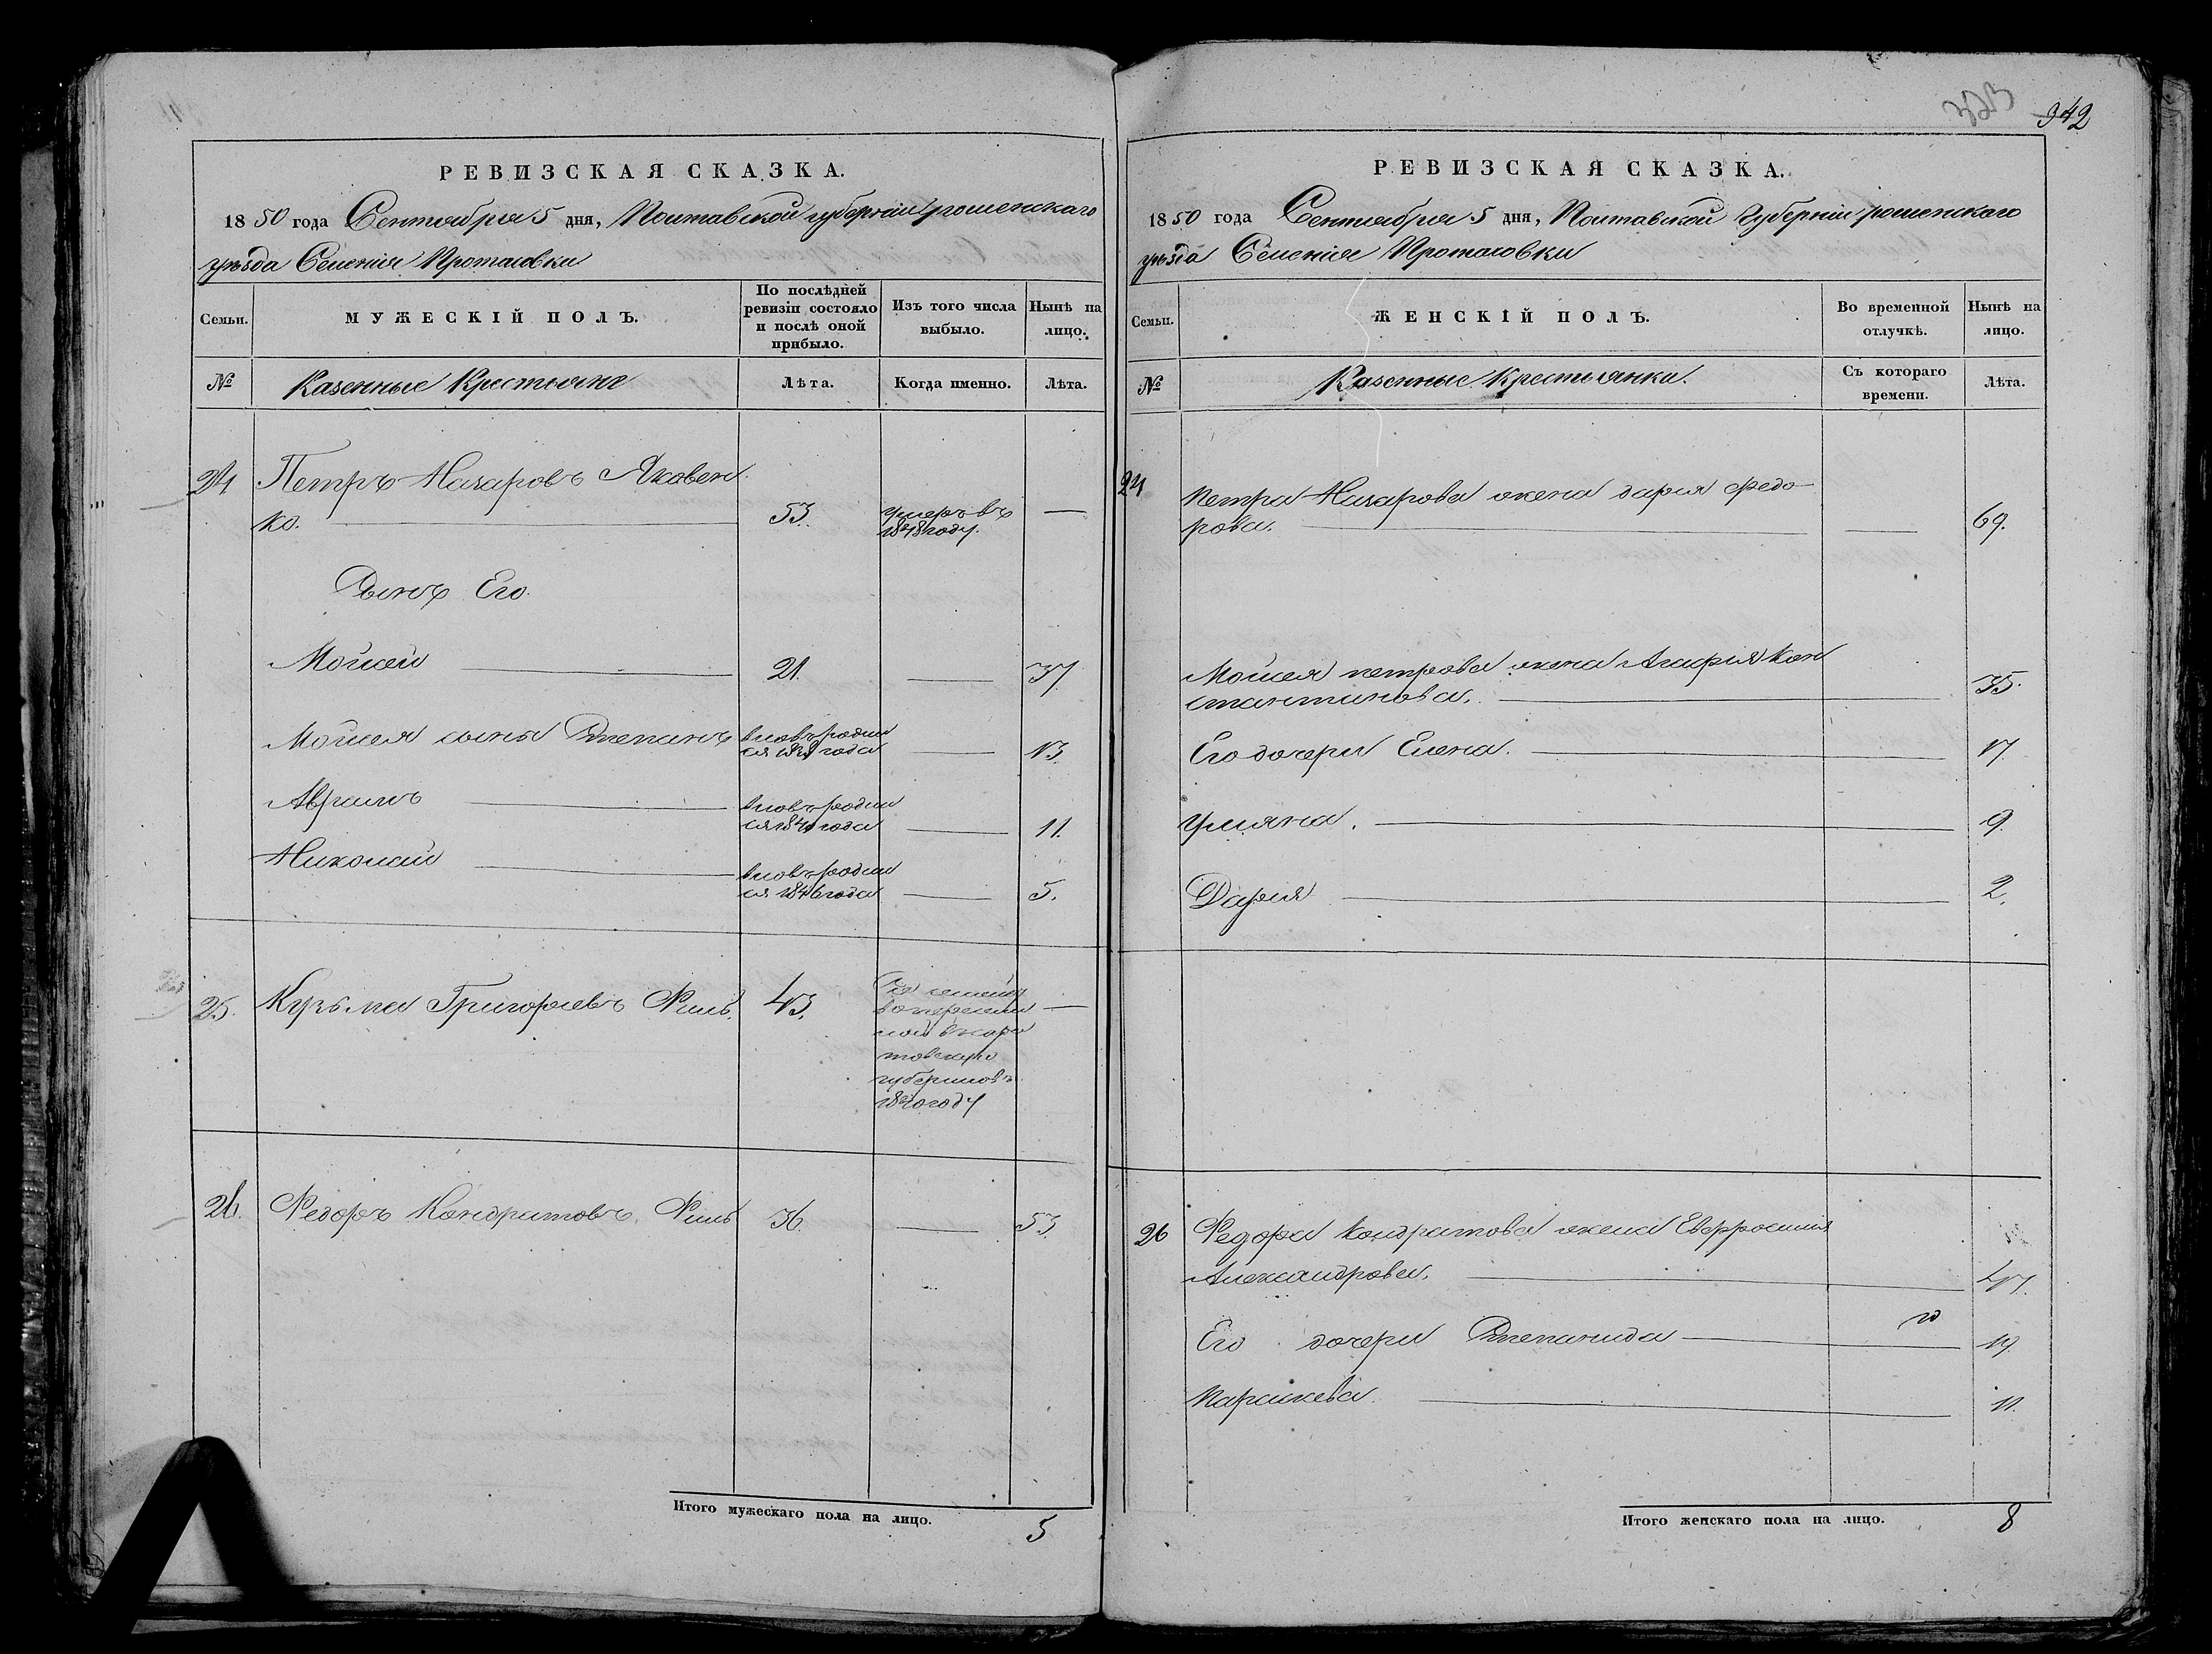 РЕВИЗСКАЯ СКАЗКА.
1850 года Сентября 5 дня, Полтавской губерніи роменскаго
уѣзда Селенія Протасовки
Семьи.
МУЖЕСКІЙ ПОЛЪ.
По послѣдней
ревизіи состояло
и послѣ оной
прибыло.
Изъ того числа
выбыло.
Нынѣ на
лицо.
№
Казенные Крестьяне
Лѣта.
Когда именно.
Лѣта.
24
Петръ Назаровъ Яковен
ко.
53.
умеръ въ
1848 году.
Сынъ Его.
Мойсей
21.
37
Мойсея сыны Степанъ
вновь родил
ся года
13.
Аврамъ
вновь родил
ся 1840 года
11.
Николай
вновь родил
ся 1846 года
5.
25.
Кузьма Григорьевъ
43.
губернію въ
году
26.
Федоръ Кондратовъ
36.
53.
Итого мужескаго пола на лицо.
5
342
РЕВИЗСКАЯ СКАЗКА.
1850 года Сентября 5 дня, Полтавской Губерніи роменскаго
уѣзда Селенія Протасовки
Семьи.
ЖЕНСКІЙ ПОЛЪ.
Во временной
отлучкѣ.
Нынѣ на
лицо.
№
Казенные Крестьянки.
Съ котораго
времени.
Лѣта.
24
Петра Назарова жена дарія Федо-
рова.
69.
Мойсея петрова жена Агафія Кон
стантинова.
35.
Его дочери Елена.
17
Уляна.
9.
Дарія
2.
26
Федора Кондратова жена Евфросинія
Александрова.
47.
Его дочери Степанида
19.
Параскева.
11.
Итого женскаго пола на лицо.
8